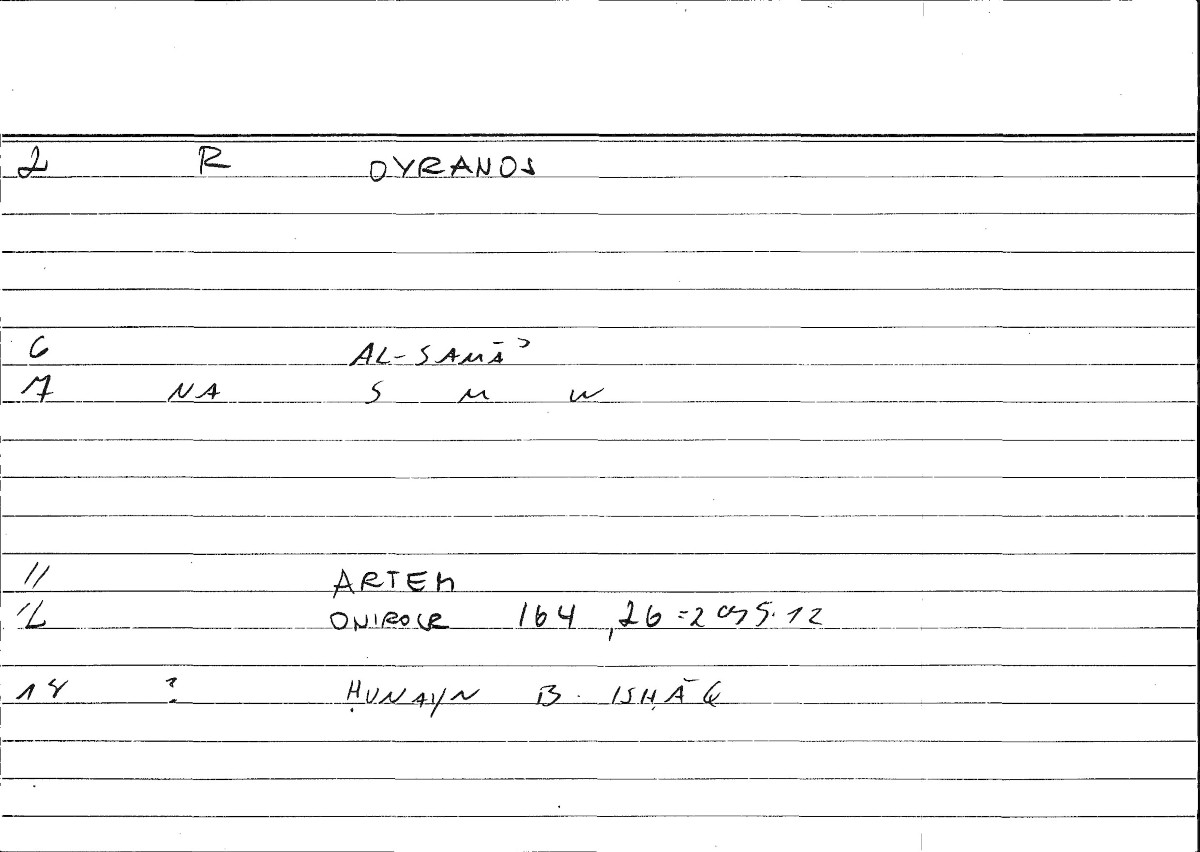 2 R OYRANOS
6 AL-SAMĀʾ
7 NA S M W
11 ARTEM
12 ONIROCR 164,26=295.12
14 ? ḤUNAYN B. ISḤĀQ